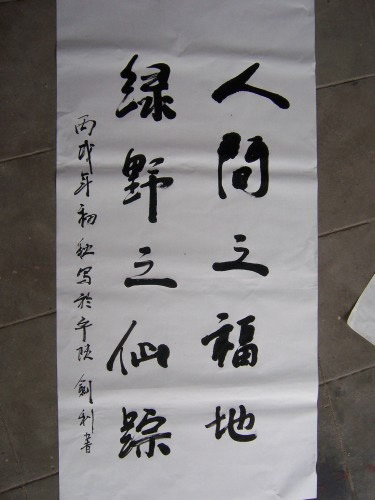 人间之福地
绿野之仙踪
丙戌年初秋写於平陕剑利书